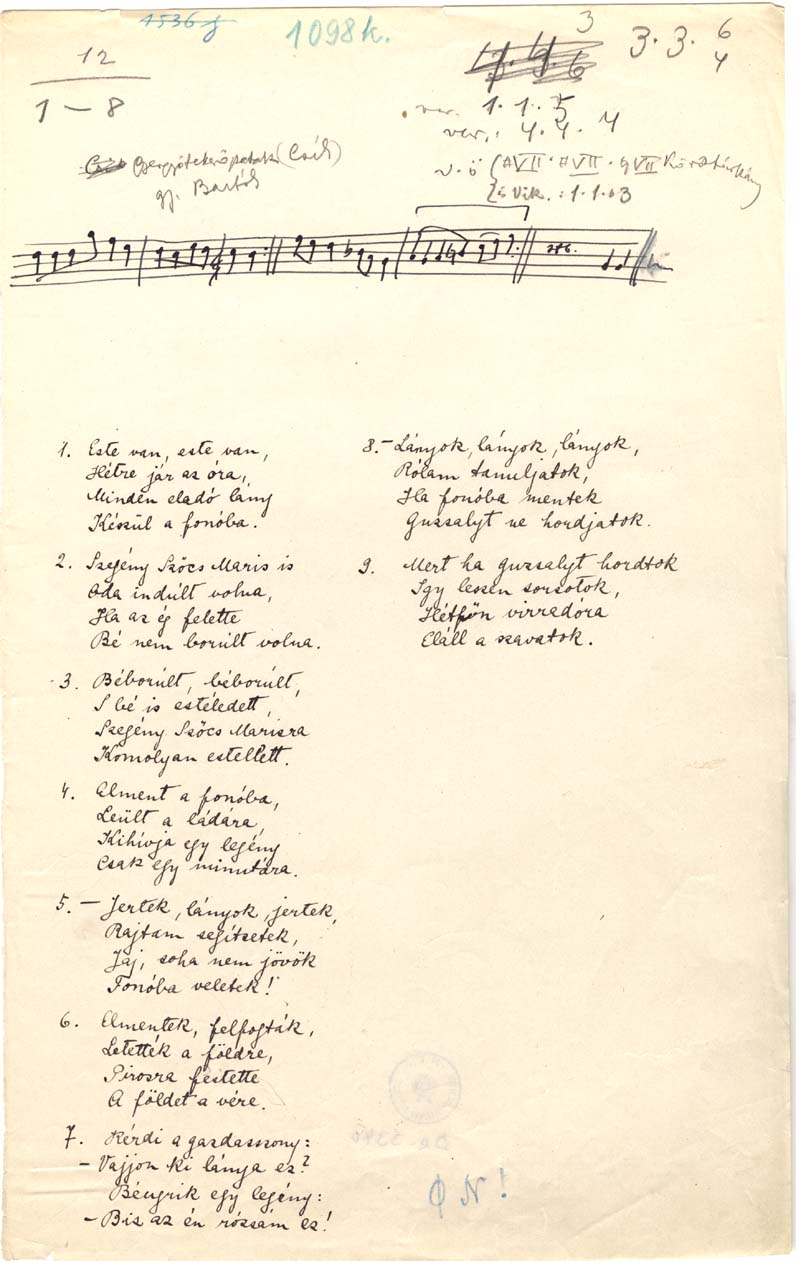 4536 j
1098k.
12
1 – 8
3
17. 19. 6
3. 3. 6
4
var. 1. 1. 5
var.: 4. 4. 4
Gyergyótekerőpatak (Csík)
gy. Bartók
v. ö (#VII. #VII. 9VII
és Vik. : 1.1.03
1. Este van, este van,
Hétre jár az óra,
Minden eladó lány
Készül a fonóba.
2. Szegény Szőcs Maris is
Oda indúlt volna,
Ha az ég felette
Bé nem borúlt volna.
3. Béborúlt, béborúlt,
S bé is estéledett,
Szegény Szőcs Marisra
Komolyan estellett.
4. Elment a fonóba,
Leült a ládára,
Kihívja egy legény
Csak egy minutára.
5. – Jertek, lányok, jertek,
Rajtam segítsetek,
Jaj, soha nem jövök
Fonóba veletek!
6. Elmentek, felfogták,
Letették a földre,
Pirosra festette
A földet a vére.
7. Kérdi a gazdasszony:
– Vajjon ki lánya ez?
Béugrik egy legény:
– Biz az én rózsám ez!
8. – Lányok, lányok, lányok,
Rólam tanuljatok,
Ha fonóba mentek
Guzsalyt ne hordjatok.
9. Mert ha guzsalyt hordtok
Igy leszen sorsotok,
Hétfőn virradóra
Eláll a szavatok.
Q N!